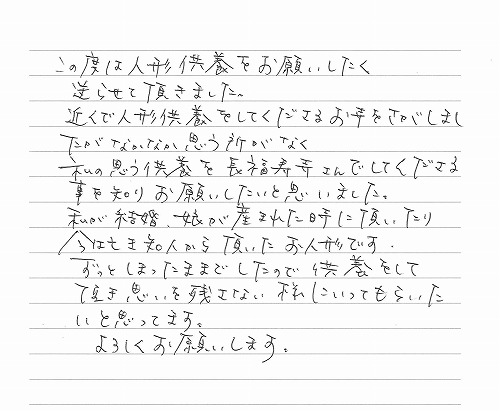 この度は人形供養をお願いしたく
送らせて頂きました。
近くで人形供養をしてくださるお寺をさがしまし
たがなかなか思う所がなく
私の思う供養を長福寿寺さんでしてくださる
事を知りお願いしたいと思いました。
私が結婚、娘が産まれた時に頂いたり
今は亡き知人から頂いたお人形です.
ずっとしまったままでしたので供養をして
頂き思いを残さない様にいってもらいた
いと思ってます。
よろしくお願いします。